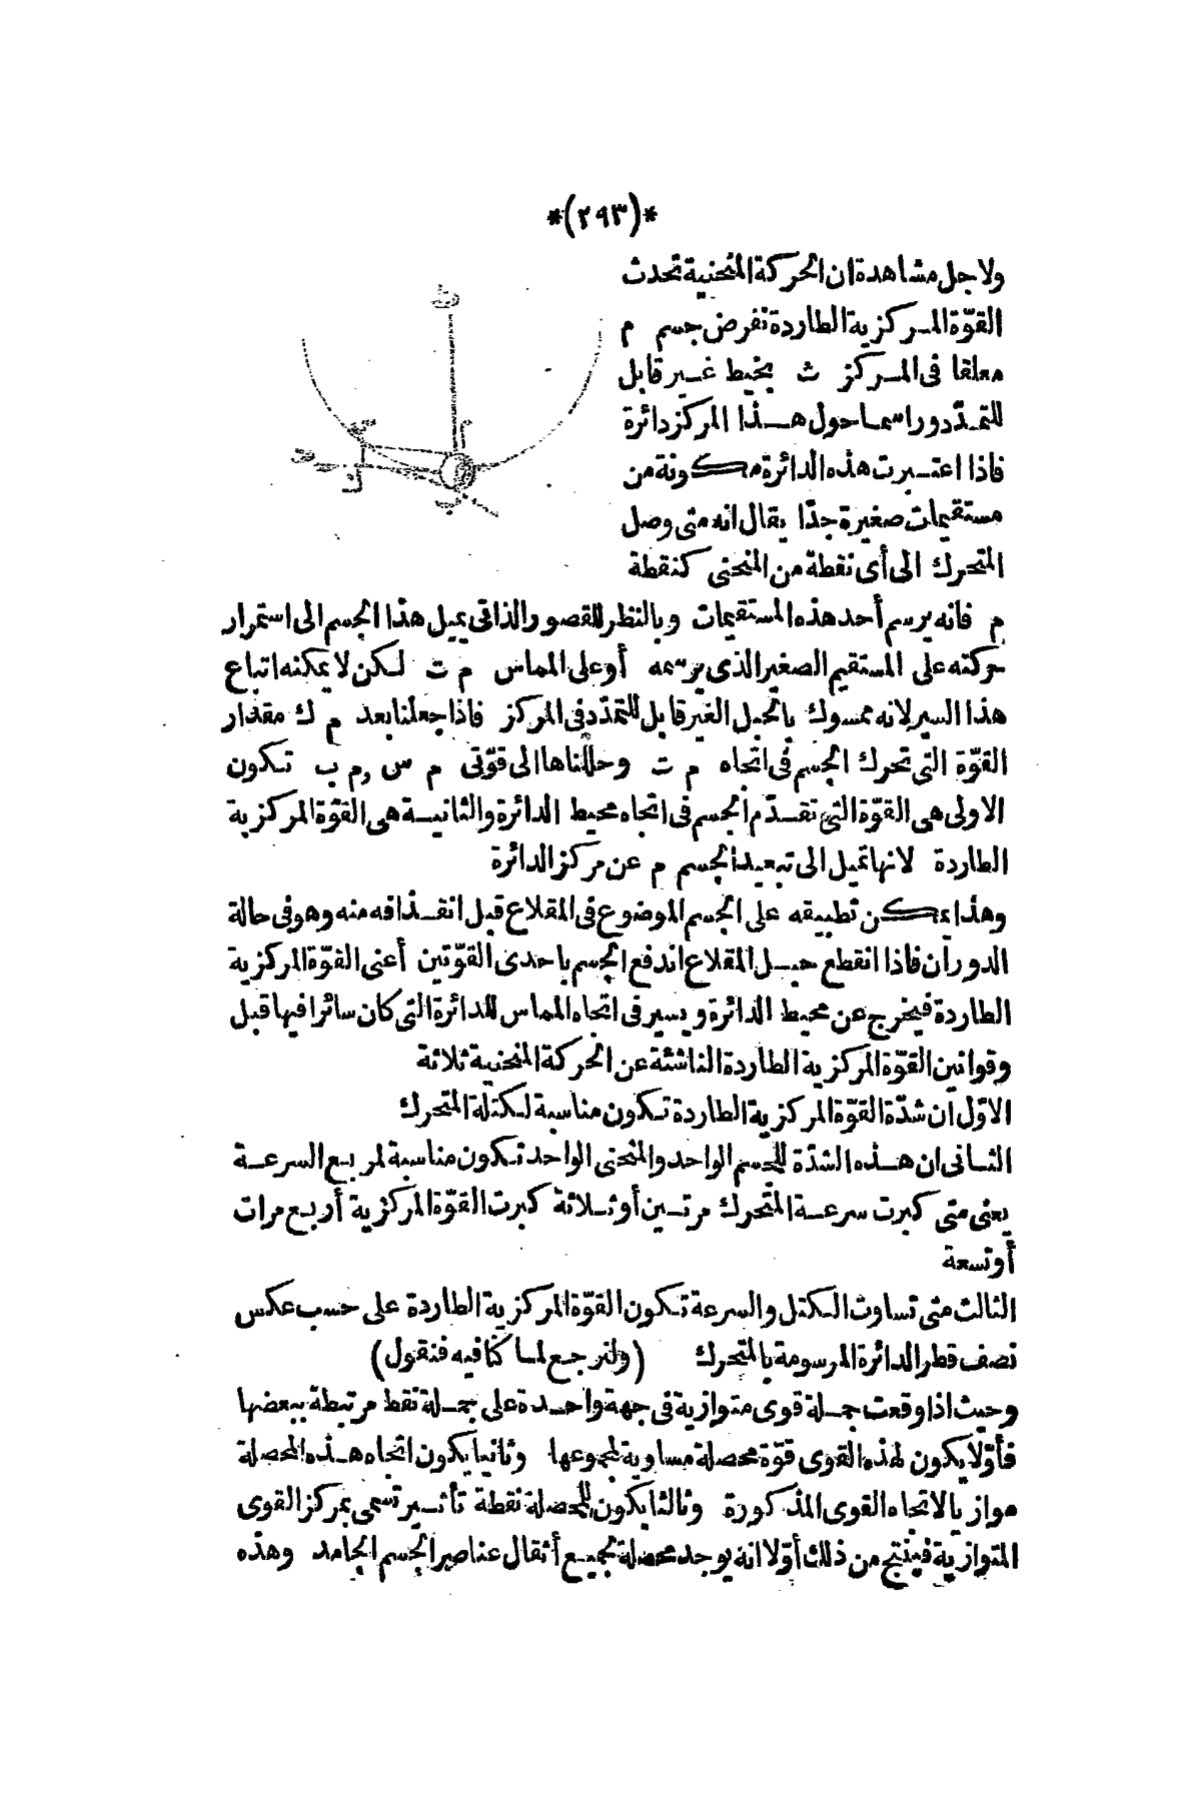 *(٢٩٣)*
ولاجل مشاهدة ان الحركة المنحنية تحدث
القوّة المركزية الطاردة نفرض جسم م
معلقا فى المركز ث بخيط غير قابل
للتمدّد وراسما حول هذا المركز دائرة
فاذا اعتبرت هذه الدائرة مكونة من
مستقيمات صغيرة جدّا يقال انه متى وصل
المتحرك الى أى نقطة من المنحنى كنقطة
م فانه يرسم أحد هذه المستقيمات وبالنظر للقصور الذاتى يميل هذا الجسم الى استمرار
حركته على المستقيم الصغير الذى يرسمه أو على المماس م ت لكن لا يمكنه اتباع
هذا السير لانه ممسوك بالحبل الغير قابل للتمدّد فى المركز فاذا جعلنا بعد م ك مقدار
القوّة التى تحرك الجسم فى اتجاه م ت وحللناها الى قوّتى م س و م ب تكون
الاولى هى القوّة التى تقدّم الجسم فى اتجاه محيط الدائرة والثانية هى القوّة المركزية
الطاردة لانها تميل الى تبعيد الجسم م عن مركز الدائرة
وهذا يمكن تطبيقه على الجسم الموضوع فى المقلاع قبل انقذافه منه وهو فى حالة
الدوران فاذا انقطع حبل المقلاع اندفع الجسم باحدى القوّتين أعنى القوّة المركزية
الطاردة فيخرج عن محيط الدائرة ويسير فى اتجاه المماس للدائرة التى كان سائرا فيها قبل
وقوانين القوّة المركزية الطاردة الناشئة عن الحركة المنحنية ثلاثة
الاوّل ان شدّة القوّة المركزية الطاردة تكون مناسبة لكتلة المتحرك
الثانى ان هذه الشدّة للجسم الواحد والمنحنى الواحد تكون مناسبة لمربع السرعة
يعنى متى كبرت سرعة المتحرك مرتين أو ثلاثة كبرت القوّة المركزية أربع مرات
أو تسعة
الثالث متى تساوت الكتل والسرعة تكون القوّة المركزية الطاردة على حسب عكس
نصف قطر الدائرة المرسومة بالمتحرك (ولنرجع لما كنا فيه فنقول)
وحيث اذا وقعت جملة قوى متوازية فى جهة واحدة على جملة نقط مرتبطة ببعضها
فأوّلا يكون لهذه القوى قوّة محصلة مساوية لمجموعها وثانيا يكون اتجاه هذه المحصلة
موازيا لاتجاه القوى المذكورة وثالثا يكون للمحصلة نقطة تأثير تسمى بمركز القوى
المتوازية فينتج من ذلك أوّلا انه يوجد محصلة لجميع أثقال عناصر الجسم الجامد وهذه